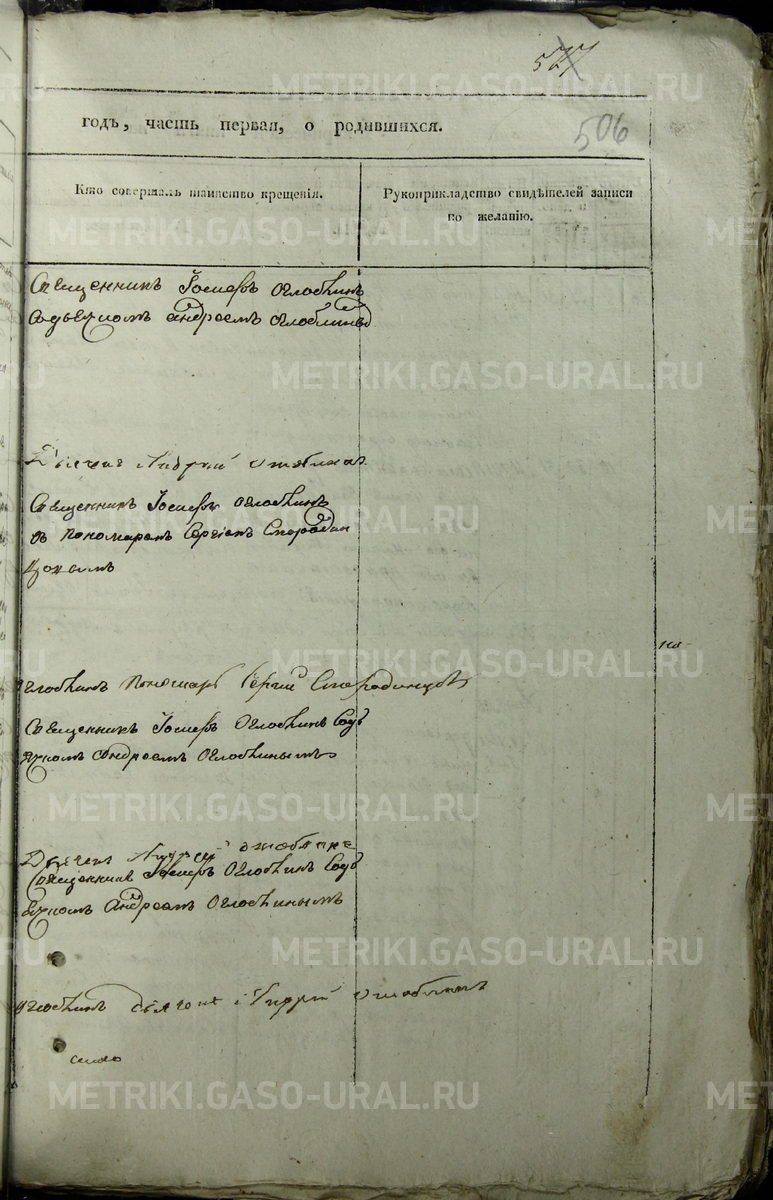 577
506
годъ, часть первая, о родившихся.
Кто совершалъ таинство крещенія.
Рукоприкладство свидѣтелей записи
по желанію.
Священникъ Іосифъ Оглоблинъ
Андреемъ Оглоблинымъ
Андрей
Священникъ Іосифъ Оглоблинъ
съ Пономаремъ Сергіемъ Смородин
цовымъ
Оглоблинъ Пономарь Сергій Смородинцовъ
Священникъ Іосифъ Оглоблинъ Содь
ячкомъ Андреемъ Оглоблинымъ
Андрей
Священникъ Іосифъ Оглоблинъ Содь
ячкомъ Андреемъ Оглоблинымъ
Оглоблинъ Андрей
METRIKI.GASO-URAL.RU